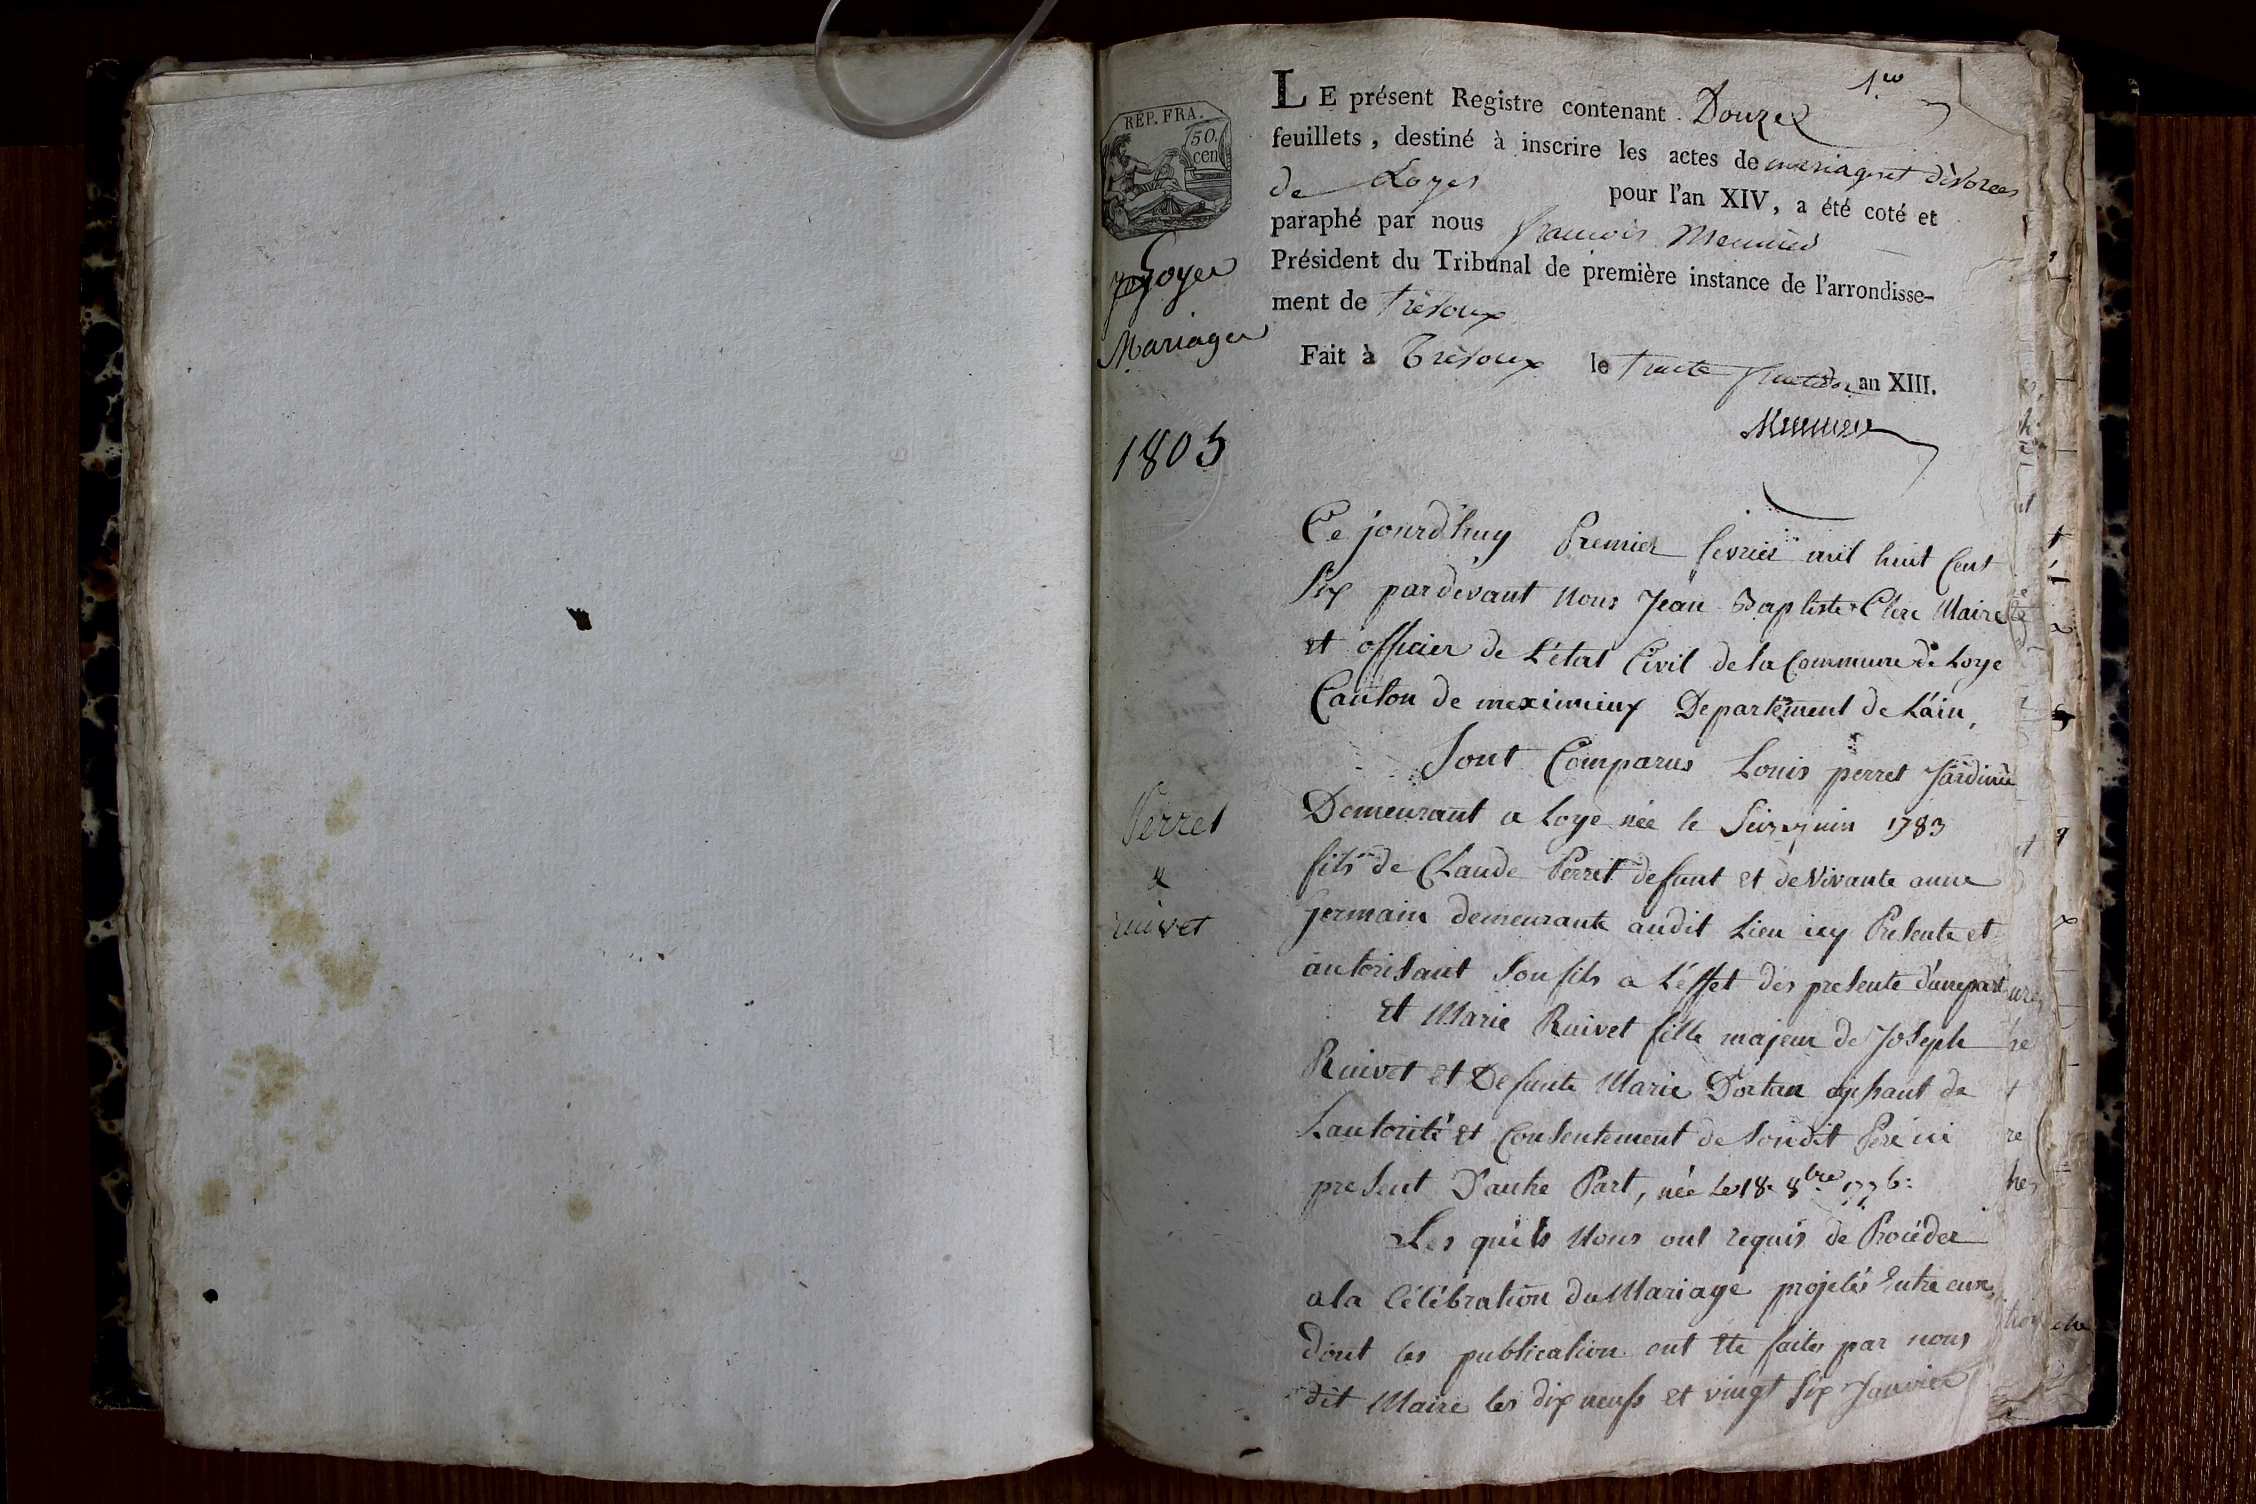 1.er
REP. FRA.
50.
cen
LE présent Registre contenant Douze
feuillets, destiné à inscrire les actes de mariages et divorces
de Loyes pour l'an XIV, a été coté et
paraphé par nous françois Meunier
Président du Tribunal de première instance de l'arrondisse-
ment de Trévoux
Fait à Trévoux le trente fructidor an XIII.
Meunier
Loyes
Mariages
1805
Ce jourd'huy Premier fevrier mil huit Cent
six pardevant Nous Jean Baptiste Clere Maire
et officier de L'état Civil de la Commune de Loye
Canton de meximieux Departement de L'ain,
Sont Comparus Louis perret Jardinier
Demeurant a Loye née le Seize juin 1783
fils de Claude Perret defunt et de Vivante anne
germain demeurante audit Lieu icy Presente et
autorisant Son fils a L'effet des presente d'une part
et Marie Ruivet fille majeur de Joseph
Ruivet et Defunte Marie Dortan agissant de
L'autorité et Consentement de Son dit Pere ici
present D'autre Part, née le 18. 8bre 1776:
Les quels Nous ont requis de Procéder
a la Célébration du Mariage projetés Entre eux,
dont les publication ont été faites par nous
dit Maire les dix neufs et vingt six Janvier
Perret
&
ruivet